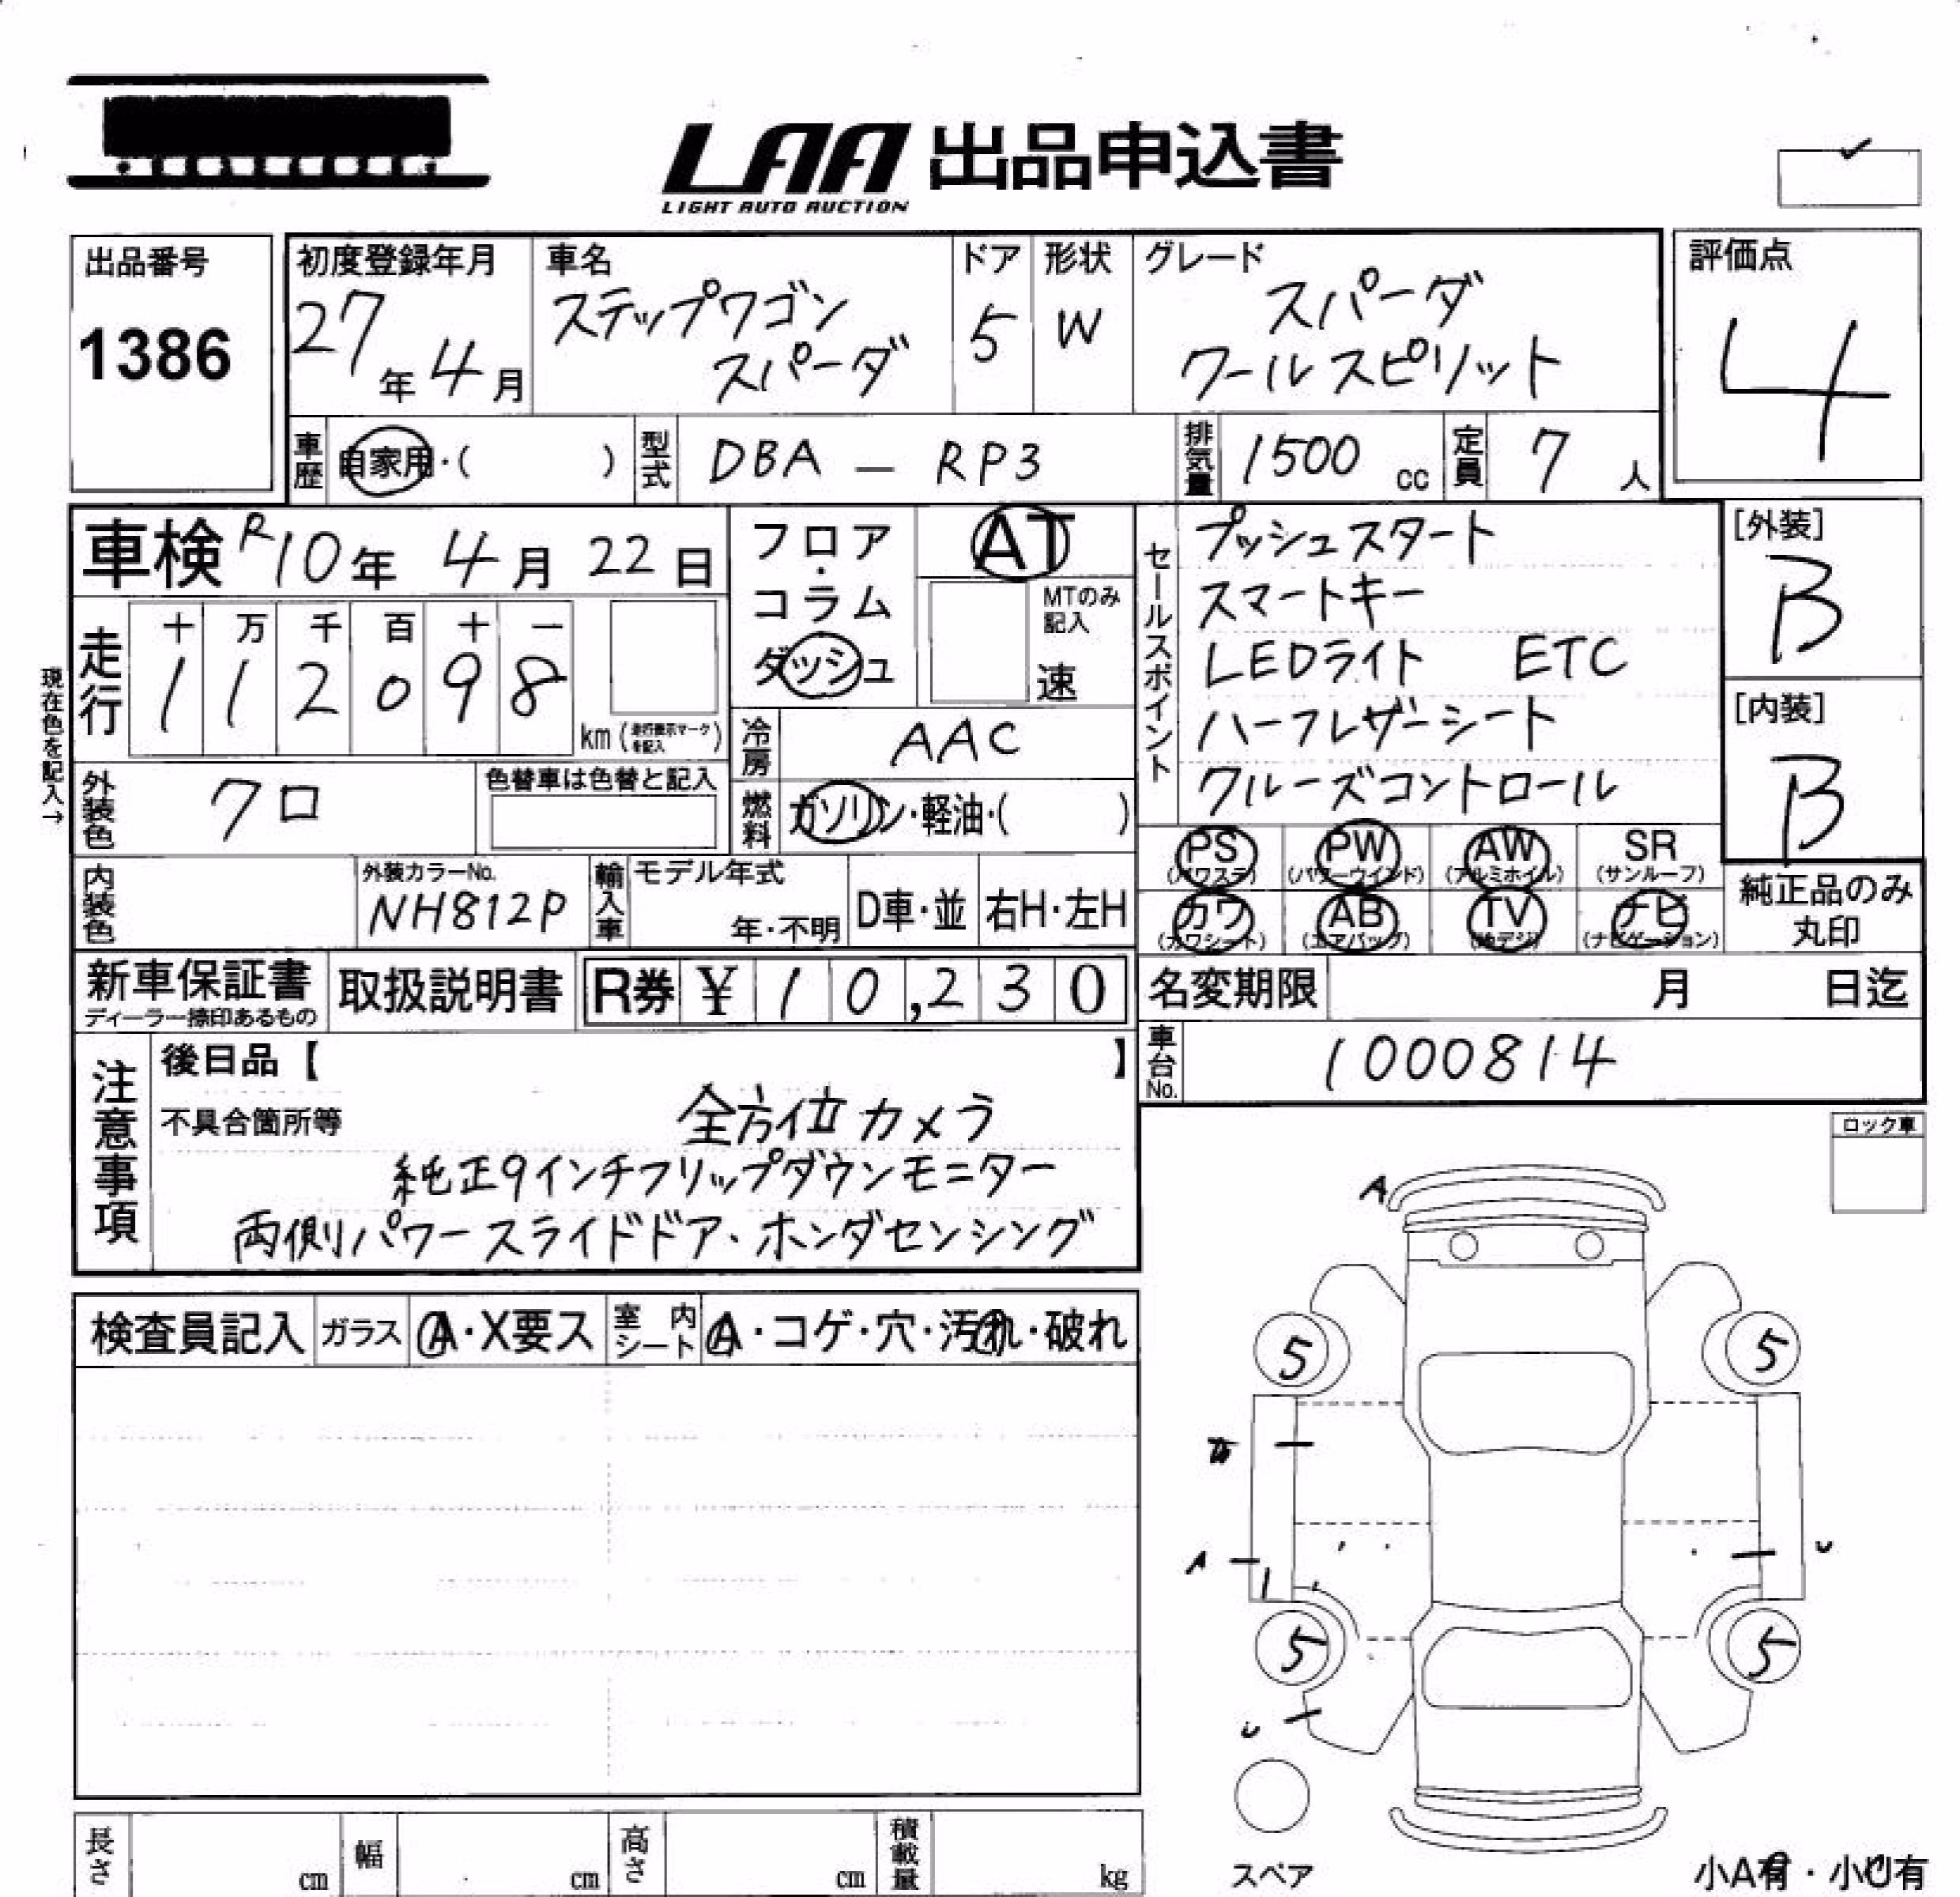 LAA 出品申込書
LIGHT AUTO AUCTION
出品番号
1386
初度登録年月
27年4月
車名
ステップワゴン
スパーダ
ドア
5
形状
W
グレード
スパーダ
クールスピリット
評価点
4
車歴 自家用・( )
型式 DBA - RP3
排気量 1500 cc
定員 7 人
車検 R10年 4月 22日
走行
十 万 千 百 十 一
1 1 2 0 9 8
km (走行表示マークを記入)
現在色を記入→
外装色 クロ
色替車は色替と記入
内装色
外装カラーNo.
NH812P
フロア・コラム
ダッシュ
AT
MTのみ記入
速
冷房 AAC
燃料 ガソリン・軽油・( )
輸入車
モデル年式
年・不明
D車・並
右H・左H
セールスポイント
プッシュスタート
スマートキー
LEDライト ETC
ハーフレザーシート
クルーズコントロール
[外装]
B
[内装]
B
PS (パワステ)
PW (パワーウインド)
AW (アルミホイル)
SR (サンルーフ)
カワ (カワシート)
AB (エアバッグ)
TV (地デジ)
ナビ (ナビゲーション)
純正品のみ丸印
新車保証書
ディーラー捺印あるもの
取扱説明書
R券 ¥10,230
名変期限 月 日迄
車台No. 1000814
注意事項
後日品【 】
不具合箇所等 全方位カメラ
純正9インチフリップダウンモニター
両側パワースライドドア、ホンダセンシング
ロック車
検査員記入
ガラス A・X要ス
室内シート A・コゲ・穴・汚れ・破れ
A
5 5
A
U
5 5
U
スペア
長さ cm
幅 cm
高さ cm
積載量 kg
小A有・小U有